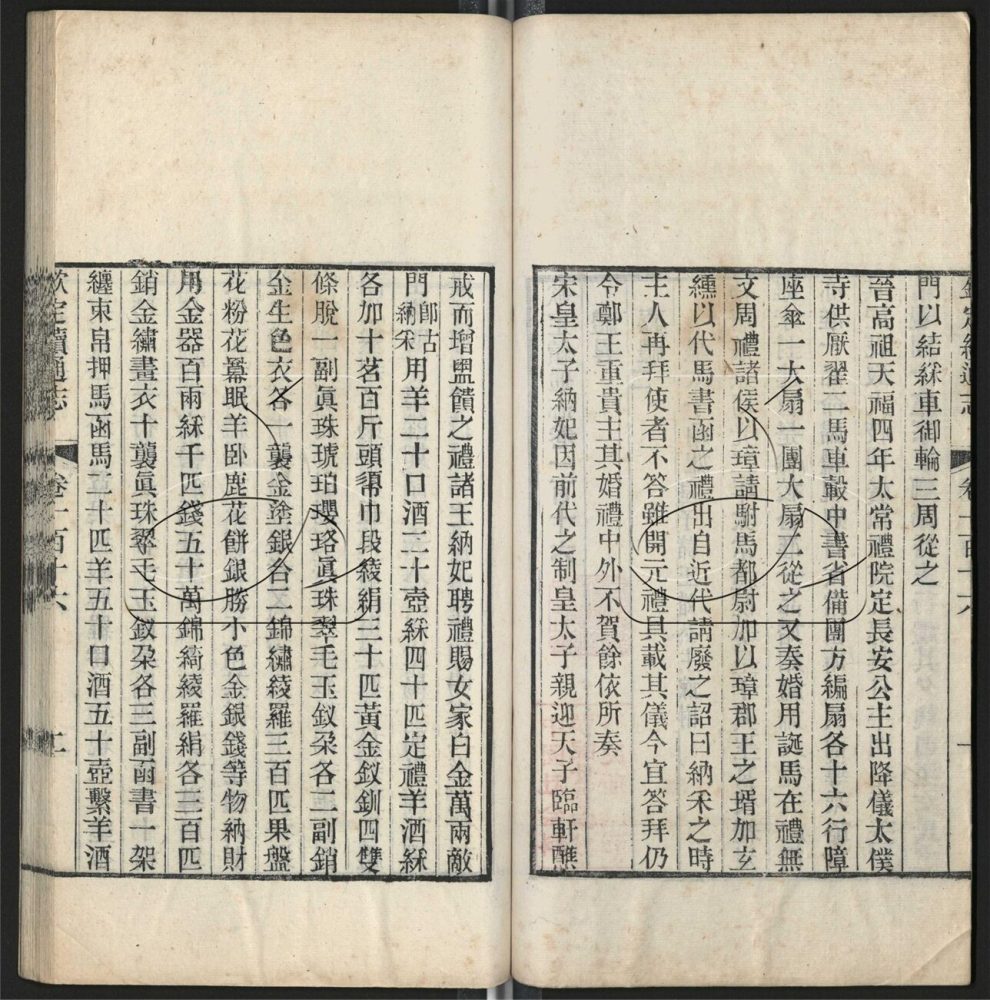 欽定續通志 卷一百十六 一
門以結綵車御輪三周從之
晉高祖天福四年太常禮院定長安公主出降儀太僕
寺供厭翟二馬車轂中書省備團方編扇各十六行障
座傘一大扇一團大扇二從之又奏婚用誕馬在禮無
文周禮諸侯以璋請駙馬都尉加以璋郡王之壻加玄
纁以代馬書函之禮出自近代請廢之詔曰納采之時
主人再拜使者不答雖開元禮具載其儀今宜答拜仍
令鄭王重貴主其婚禮中外不賀餘依所奏
宋皇太子納妃因前代之制皇太子親迎天子臨軒醮
戒而增盥饋之禮諸王納妃聘禮賜女家白金萬兩敵
門卽古納采用羊二十口酒二十壺綵四十匹定禮羊酒綵
各加十茗百斤頭㡇巾段綾絹三十匹黃金釵釧四雙
條脫一副眞珠琥珀瓔珞眞珠翠毛玉釵朶各二副銷
金生色衣各一襲金塗銀合二錦繡綾羅三百匹果盤
花粉花冪眠羊卧鹿花餅銀勝小色金銀錢等物納財
用金器百兩綵千匹錢五十萬錦綺綾羅絹各三百匹
銷金繡畫衣十襲眞珠翠毛玉釵朶各三副函書一架
纏束帛押馬函馬二十匹羊五十口酒五十壺繫羊酒
欽定續通志 卷一百十六 二